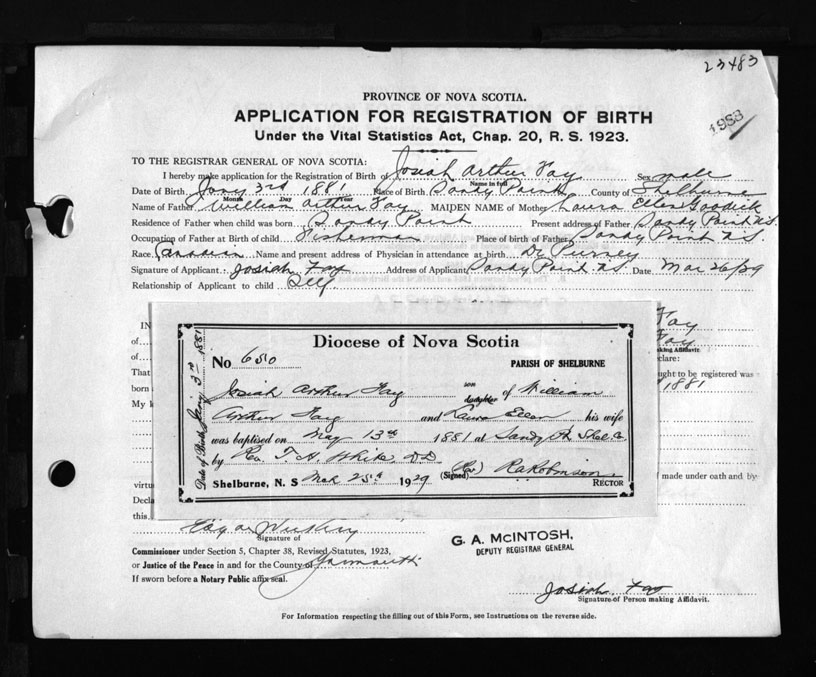 23483
1983
PROVINCE OF NOVA SCOTIA.
APPLICATION FOR REGISTRATION OF BIRTH
Under the Vital Statistics Act, Chap. 20, R. S. 1923.
TO THE REGISTRAR GENERAL OF NOVA SCOTIA:
I hereby make application for the Registration of Birth of Josiah Arthur Fay Sex male
Name in full
Date of Birth Jany 3rd 1881 Place of Birth Sandy Point County of Shelburne
Month Day Year
Name of Father William Arthur Fay MAIDEN NAME of Mother Laura Ellen Goodick
Residence of Father when child was born Sandy Point Present address of Father Sandy Point N.S.
Occupation of Father at Birth of child Fisherman Place of birth of Father Sandy Point N.S.
Race Canadian Name and present address of Physician in attendance at birth Dr Purney
Signature of Applicant Josiah Fay Address of Applicant Sandy Point N.S. Date Mar 26/29
Relationship of Applicant to child Self
IN Fay
of Fay
making Affidavit
of clare:
That ught to be registered was
born 1881
My k
Diocese of Nova Scotia
No 650 PARISH OF SHELBURNE
Date of Birth Jany 3rd 1881
Josiah Arthur Fay son daughter of William
Arthur Fay and Laura Ellen his wife
was baptised on May 13th 1881 at Sandy Pt. Shel. Co.
by Rev. T. H. White, D.D.
Shelburne, N. S. Mch 25th 1929 (Signed) (Rev) Robinson
RECTOR
virtu f made under oath and by
Decla
this
Signature of
Commissioner under Section 5, Chapter 38, Revised Statutes, 1923,
or Justice of the Peace in and for the County of Yarmouth
If sworn before a Notary Public affix seal.
G. A. McINTOSH,
DEPUTY REGISTRAR GENERAL
Josiah Fay
Signature of Person making Affidavit.
For Information respecting the filling out of this Form, see Instructions on the reverse side.